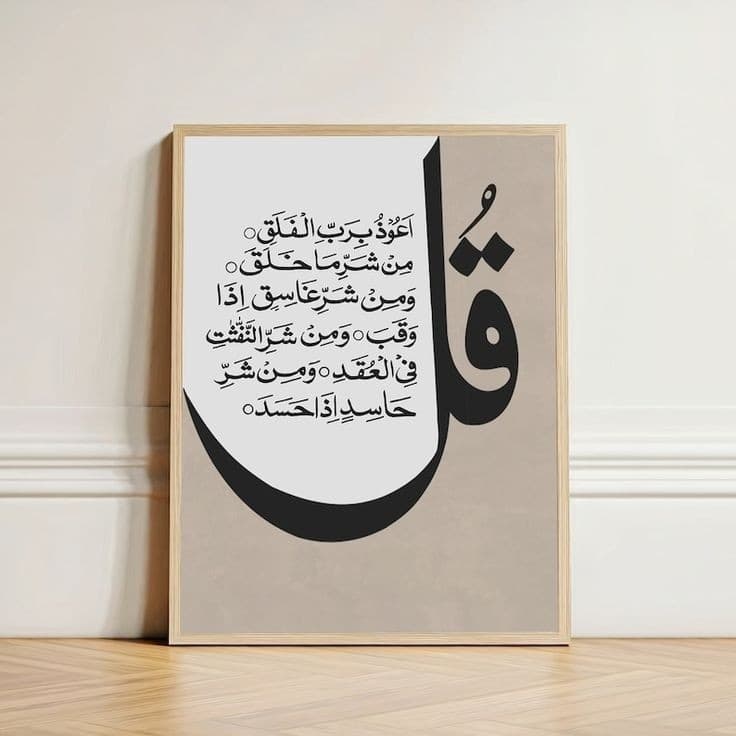 قُل
اَعُوْذُ بِرَبِّ الْفَلَقِ ○
مِنْ شَرِّ مَا خَلَقَ ○
وَمِنْ شَرِّ غَاسِقٍ اِذَا
وَقَبَ ○ وَمِنْ شَرِّ النَّفّٰثٰتِ
فِي الْعُقَدِ ○ وَمِنْ شَرِّ
حَاسِدٍ اِذَا حَسَدَ ○